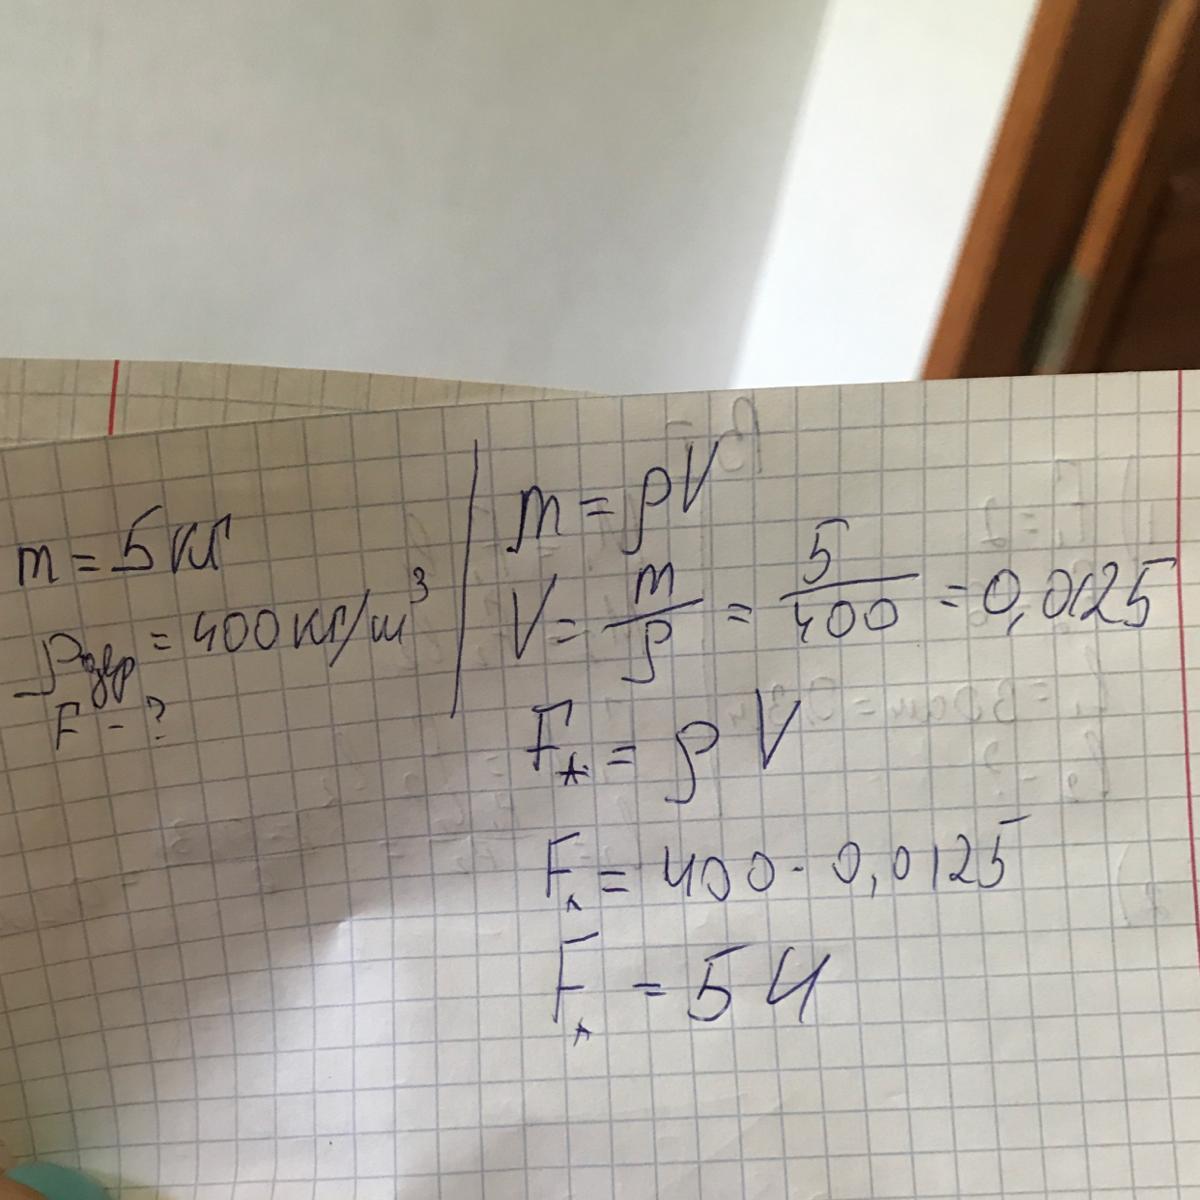 m = 5 кг
ρдер = 400 кг/м³
F - ?
m = ρV
V = m/ρ = 5/400 = 0,0125
Fₐ = ρV
Fₐ = 400 · 0,0125
Fₐ = 5 Н